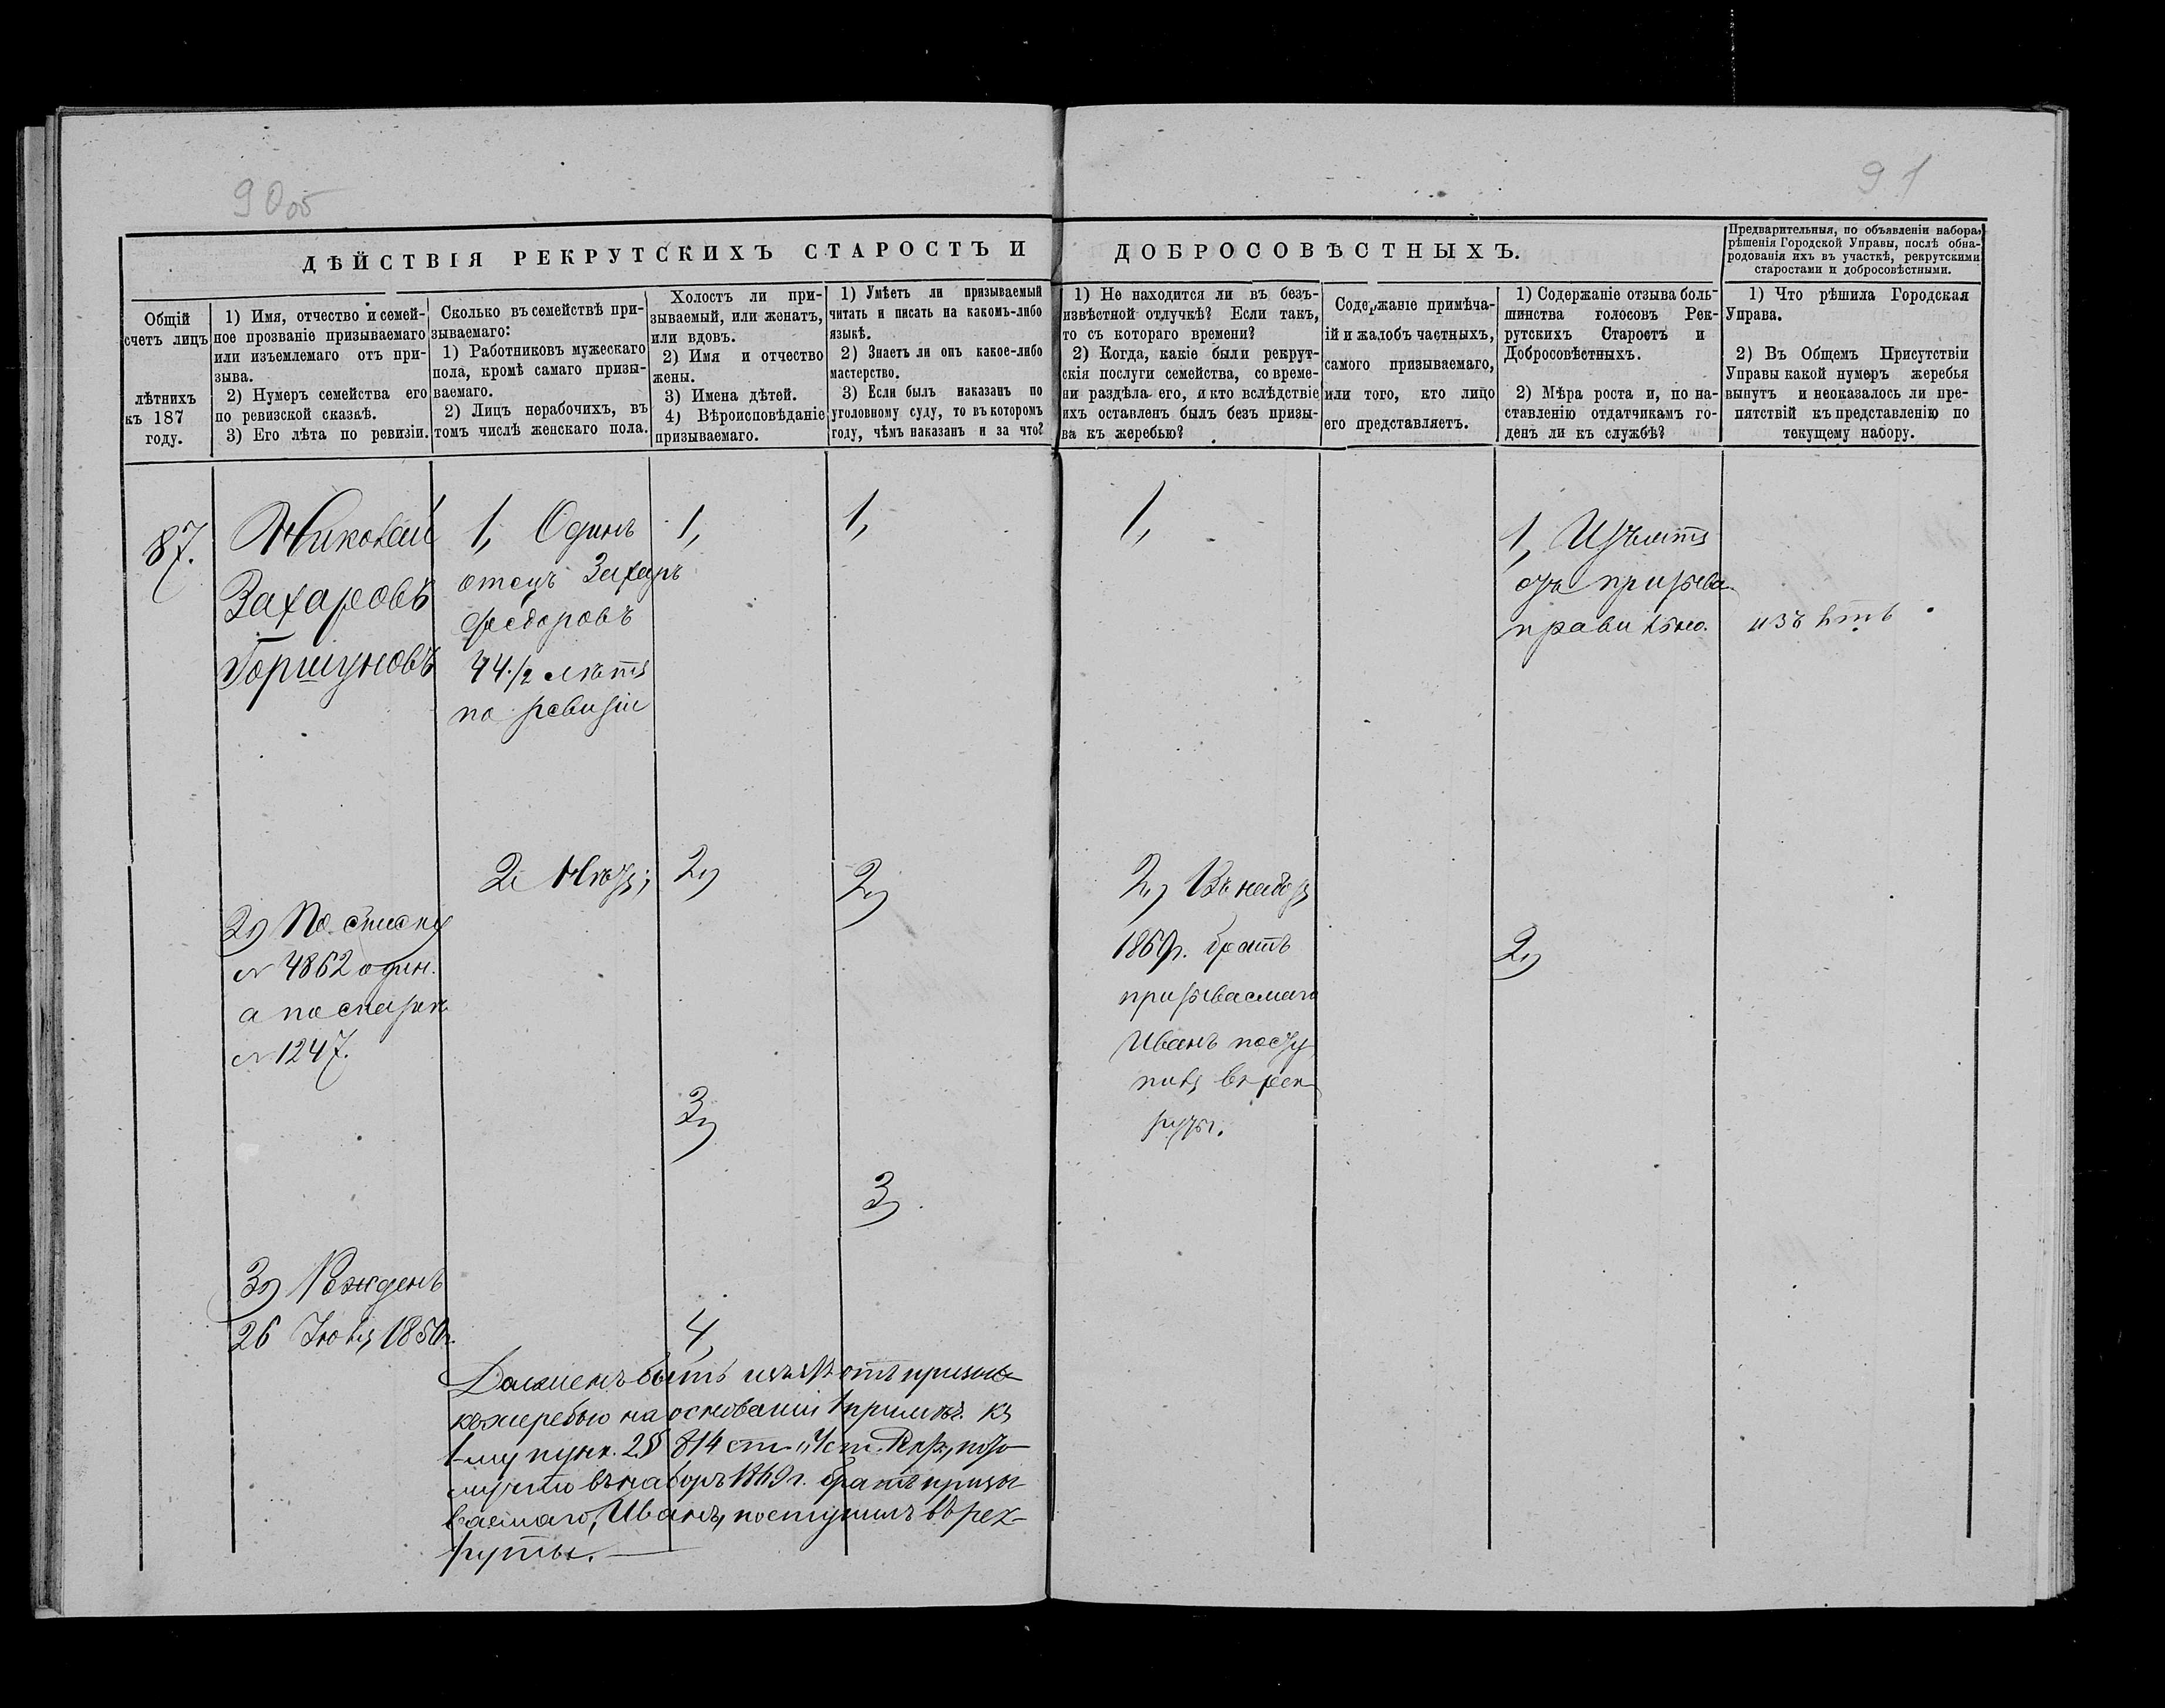 90об
91
ДѢЙСТВІЯ РЕКРУТСКИХЪ СТАРОСТЪ И ДОБРОСОВѢСТНЫХЪ.
Предварительныя, по объявленіи набора,
рѣшенія Городской Управы, послѣ обна-
родованія ихъ въ участкѣ, рекрутскими
старостами и добросовѣстными.
Общій
счетъ лицъ
лѣтнихъ
къ 187
году.
1) Имя, отчество и семей-
ное прозваніе призываемаго
или изъемлемаго отъ при-
зыва.
2) Нумеръ семейства его
по ревизской сказкѣ.
3) Его лѣта по ревизіи.
Сколько въ семействѣ при-
зываемаго:
1) Работниковъ мужескаго
пола, кромѣ самаго призы-
ваемаго.
2) Лицъ нерабочихъ, въ
томъ числѣ женскаго пола.
Холостъ ли при-
зываемый, или женатъ,
или вдовъ.
2) Имя и отчество
жены.
3) Имена дѣтей.
4) Вѣроисповѣданіе
призываемаго.
1) Умѣетъ ли призываемый
читать и писать на какомъ-либо
языкѣ.
2) Знаетъ ли онъ какое-либо
мастерство.
3) Если былъ наказанъ по
уголовному суду, то въ которомъ
году, чѣмъ наказанъ и за что?
1) Не находится ли въ безъ-
извѣстной отлучкѣ? Если такъ,
то съ котораго времени?
2) Когда, какіе были рекрут-
скія послуги семейства, со време-
ни раздѣла его, и кто вслѣдствіе
ихъ оставленъ былъ безъ призы-
ва къ жеребью?
Содержаніе примѣча-
ній и жалобъ частныхъ,
самого призываемаго,
или того, кто лицо
его представляетъ.
1) Содержаніе отзыва боль-
шинства голосовъ Рек-
рутскихъ Старостъ и
Добросовѣстныхъ.
2) Мѣра роста и, по на-
ставленію отдатчикамъ го-
денъ ли къ службѣ?
1) Что рѣшила Городская
Управа.
2) Въ Общемъ Присутствіи
Управы какой нумеръ жеребья
вынутъ и неоказалось ли пре-
пятствій къ представленію по
текущему набору.
87.
Николай
Захаровъ
Горшуновъ
2) По списку
№ 4862 один.
а по сказкѣ
№ 1247.
3) Рожденъ
26 Іюля 1850г.
1, Одинъ
отецъ Захаръ
Федоровъ
44 1/2 лѣтъ
по ревизіи
2, Нѣтъ;
1,
2,
3,
4,
1,
2,
3,
Долженъ быть изъятъ отъ призыва
къ жеребью на основаніи 1 примѣч. къ
1-му пунк. 2 § 814 ст. Уст. Рекр., пото-
му что въ наборъ 1869 г. братъ призы-
ваемаго, Иванъ, поступилъ въ рек-
руты.
1,
2, Въ наборъ
1869г. братъ
призываемаго
Иванъ посту
пилъ въ рек-
руты.
1, Изъять
отъ призыва
правильно.
2,
изъять